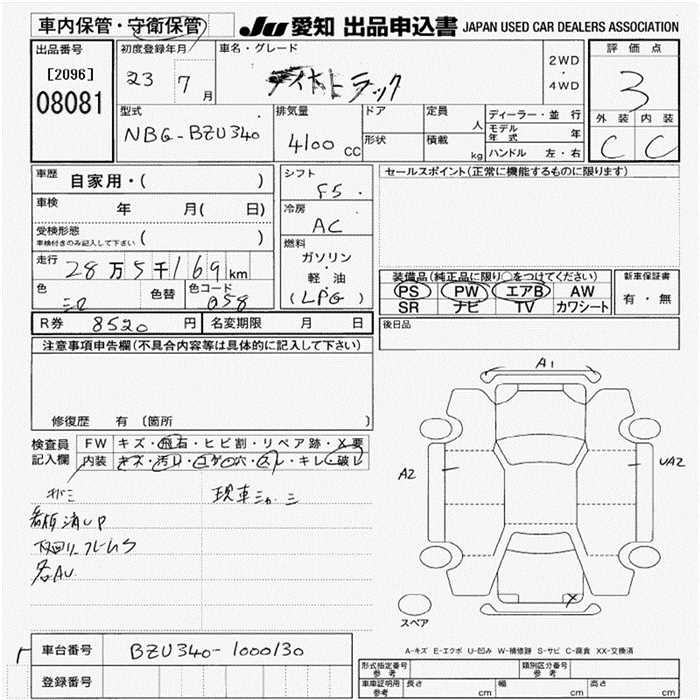 車内保管・守衛保管 JU 愛知 出品申込書 JAPAN USED CAR DEALERS ASSOCIATION
出品番号 [2096] 08081
初度登録年月 23 7月
車名・グレード
2WD・4WD
評価点 3
外装 内装 C C
型式 NBG-BZU340
排気量 4100 CC
ドア 形状
定員 人
積載 kg
ディーラー・並行
モデル年式 年
ハンドル 左・右
車歴 自家用・( )
車検 年 月( 日)
受検形態 車検付きのみ記入して下さい ( )
走行 28万5千169km
色 色替 色コード 058
シフト F5
冷房 AC
燃料 ガソリン・軽油 (LPG)
セールスポイント(正常に機能するものに限ります)
装備品(純正品に限り○をつけてください)
PS PW エアB AW
SR ナビ TV カワシート
新車保証書 有・無
R券 8520円 名変期限 月 日
後日品
注意事項申告欄(不具合内容等は具体的に記入して下さい)
修復歴 有 〔箇所 〕
検査員記入欄
FW キズ・飛石・ヒビ割・リペア跡・X要
内装 キズ・汚れ・コゲ穴・スレ・キレ・破レ
下回り.フレームS
各AU
A1
A2
UA2
X
スペア
A-キズ E-エクボ U-凹み W-補修跡 S-サビ C-腐食 XX-交換済
車台番号 BZU340-1000130
登録番号
形式指定番号 参考
類別区分番号 参考
車庫証明用 参考 長さ cm 幅 cm 高さ cm